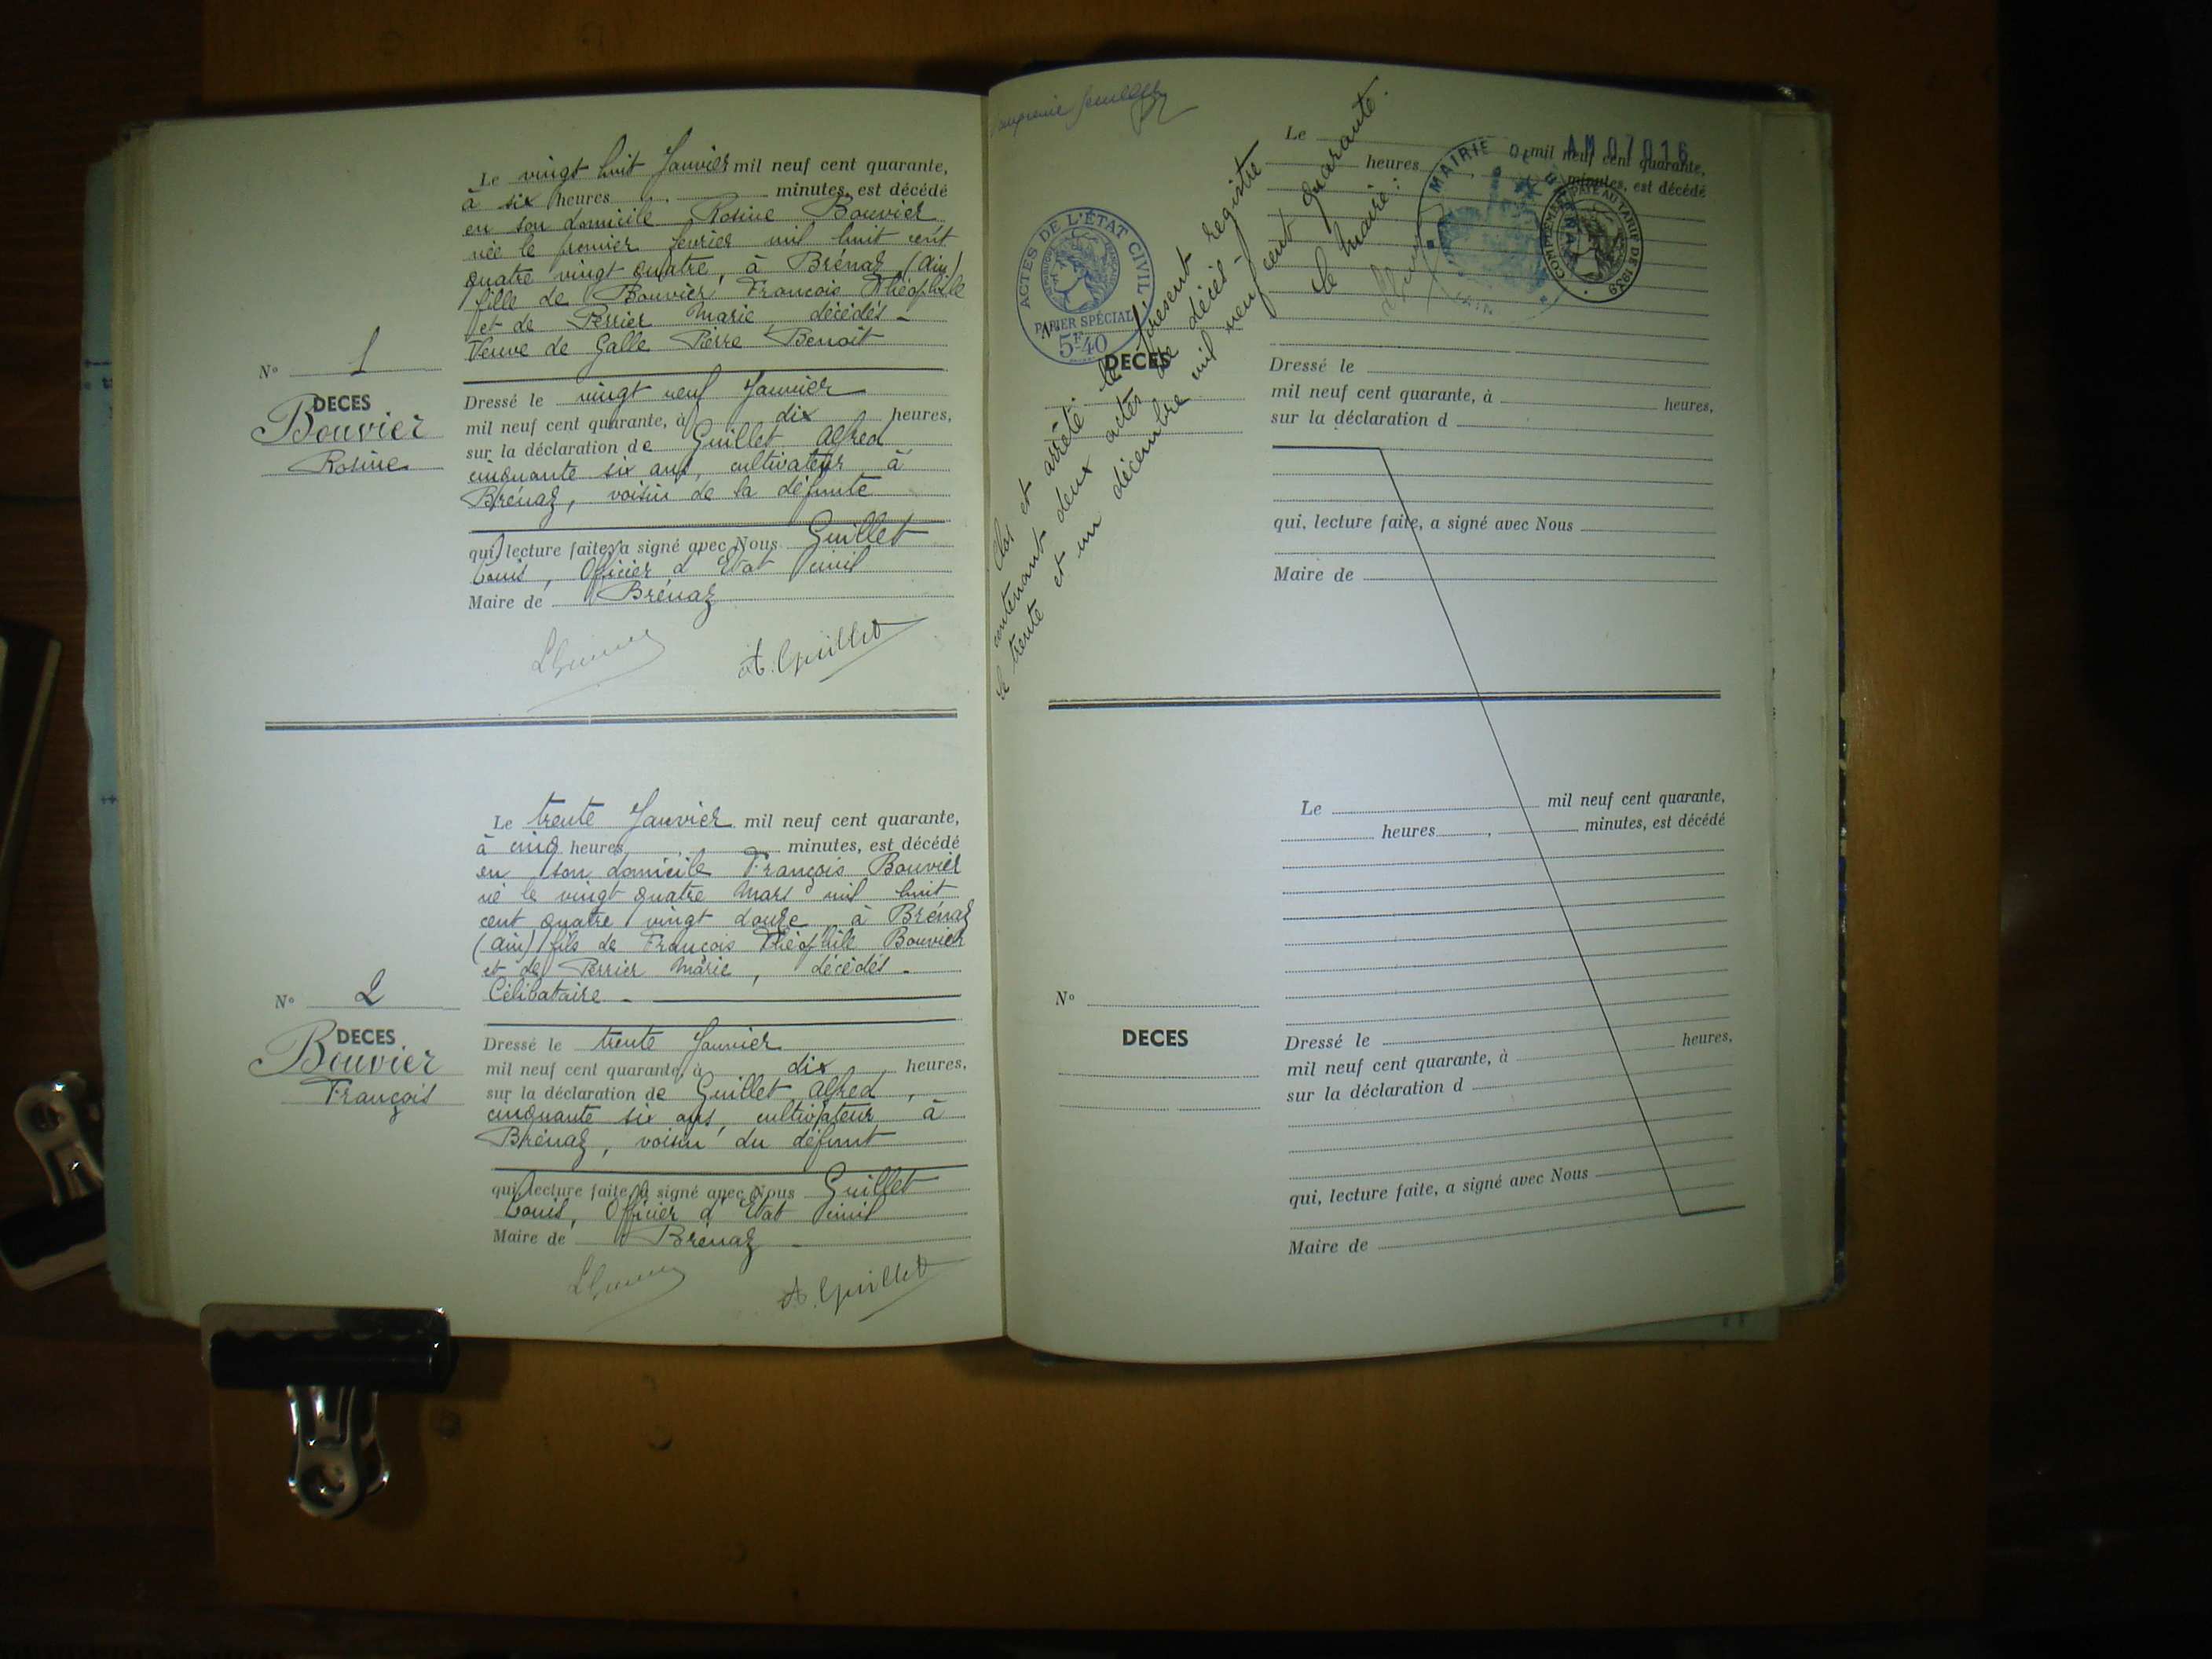 Le vingt huit Janvier mil neuf cent quarante,
à six heures , minutes, est décédé
en son domicile Rosine Bouvier
née le premier février mil huit cent
quatre vingt quatre, à Brénaz (Ain)
fille de Bouvier François Théophile
et de Perrier Marie, décédés -
Veuve de Galle Pierre Benoît
N° 1
DECES
Bouvier
Rosine
Dressé le vingt neuf Janvier
mil neuf cent quarante, à dix heures,
sur la déclaration de Guillet Alfred
cinquante six ans, cultivateur à
Brénaz, voisin de la défunte
qui, lecture faite, a signé avec Nous Guillet
Louis, Officier d'Etat Civil
Maire de Brénaz
A. Guillet
Le trente Janvier mil neuf cent quarante,
à cinq heures , minutes, est décédé
en son domicile François Bouvier
né le vingt quatre Mars mil huit
cent quatre vingt douze à Brénaz
(Ain) fils de François Théophile Bouvier
et de Perrier Marie, décédés -
Célibataire -
N° 2
DECES
Bouvier
François
Dressé le trente Janvier
mil neuf cent quarante, à dix heures,
sur la déclaration de Guillet Alfred,
cinquante six ans, cultivateur à
Brénaz, voisin du défunt
qui, lecture faite, a signé avec Nous Guillet
Louis, Officier d'Etat Civil
Maire de Brénaz -
A. Guillet
Clos et arrêté le présent registre
contenant deux actes de décès -
le trente et un décembre mil neuf cent quarante.
Le Maire :
ACTES DE L'ÉTAT CIVIL
PAPIER SPÉCIAL
5F40
MAIRIE DE BRENAZ
AIN
AM 07016
COMPLÉMENT PAYÉ AU TARIF DE 1939
Le mil neuf cent quarante,
heures , minutes, est décédé
DECES
Dressé le
mil neuf cent quarante, à heures,
sur la déclaration d
qui, lecture faite, a signé avec Nous
Maire de
Le mil neuf cent quarante,
heures , minutes, est décédé
N°
DECES
Dressé le
mil neuf cent quarante, à heures,
sur la déclaration d
qui, lecture faite, a signé avec Nous
Maire de